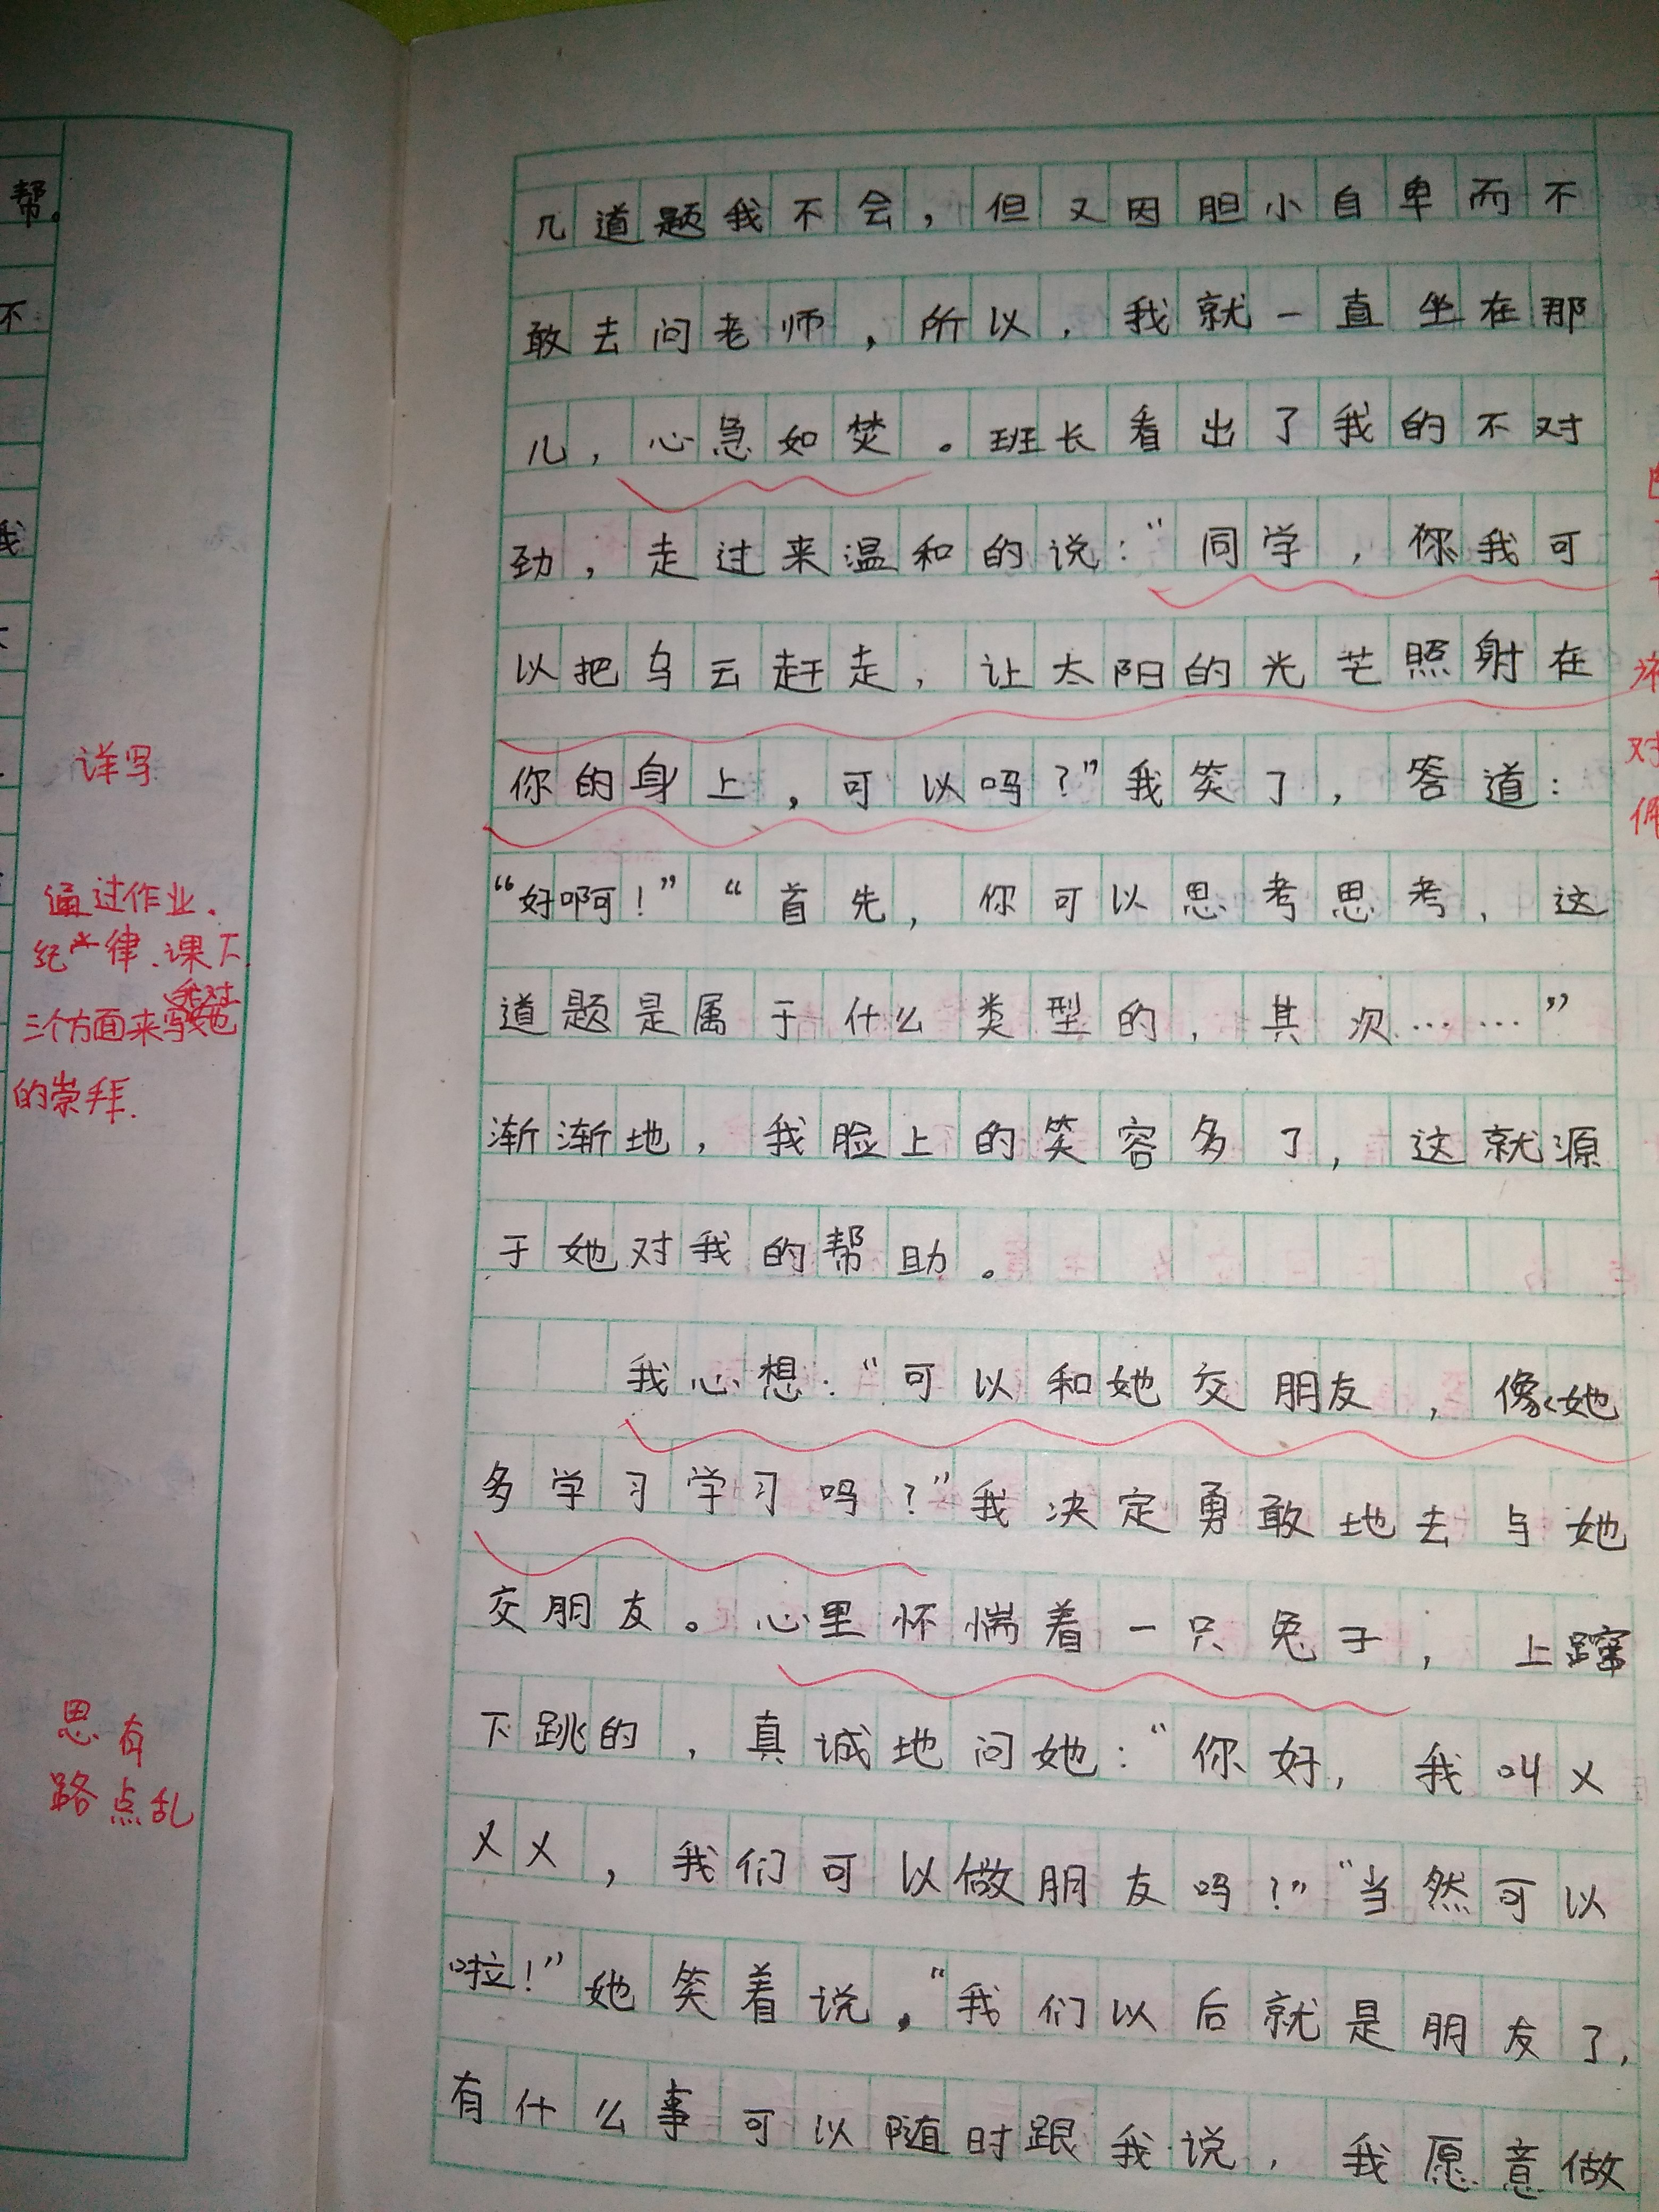 帮。
不
我
详写
通过作业.
纪律.课下
我对
三个方面来写她
的崇拜.
思有
路点乱
几道题我不会，但又因胆小自卑而不
敢去问老师，所以，我就一直坐在那
儿，心急如焚。班长看出了我的不对
劲，走过来温和的说：“同学，你我可
以把乌云赶走，让太阳的光芒照射在
你的身上，可以吗？”我笑了，答道：
“好啊！”“首先，你可以思考思考，这
道题是属于什么类型的，其次……”
渐渐地，我脸上的笑容多了，这就源
于她对我的帮助。
我心想：“可以和她交朋友，像她
多学习学习吗？”我决定勇敢地去与她
交朋友。心里怀惴着一只兔子，上蹿
下跳的，真诚地问她：“你好，我叫×
××，我们可以做朋友吗？”“当然可以
啦！”她笑着说，“我们以后就是朋友了，
有什么事可以随时跟我说，我愿意做
对